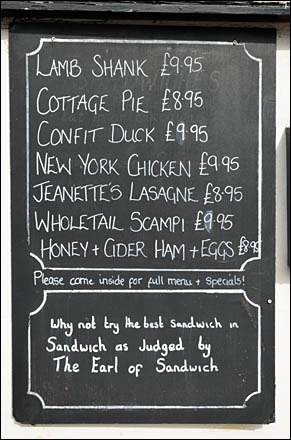 LAMB SHANK £9.95
COTTAGE PIE £8.95
CONFIT DUCK £9.95
NEW YORK CHICKEN £9.95
JEANETTE'S LASAGNE £8.95
WHOLETAIL SCAMPI £9.95
HONEY + CIDER HAM + EGGS £8.95
Please come inside for full menu + specials!
Why not try the best sandwich in
Sandwich as Judged by
The Earl of Sandwich